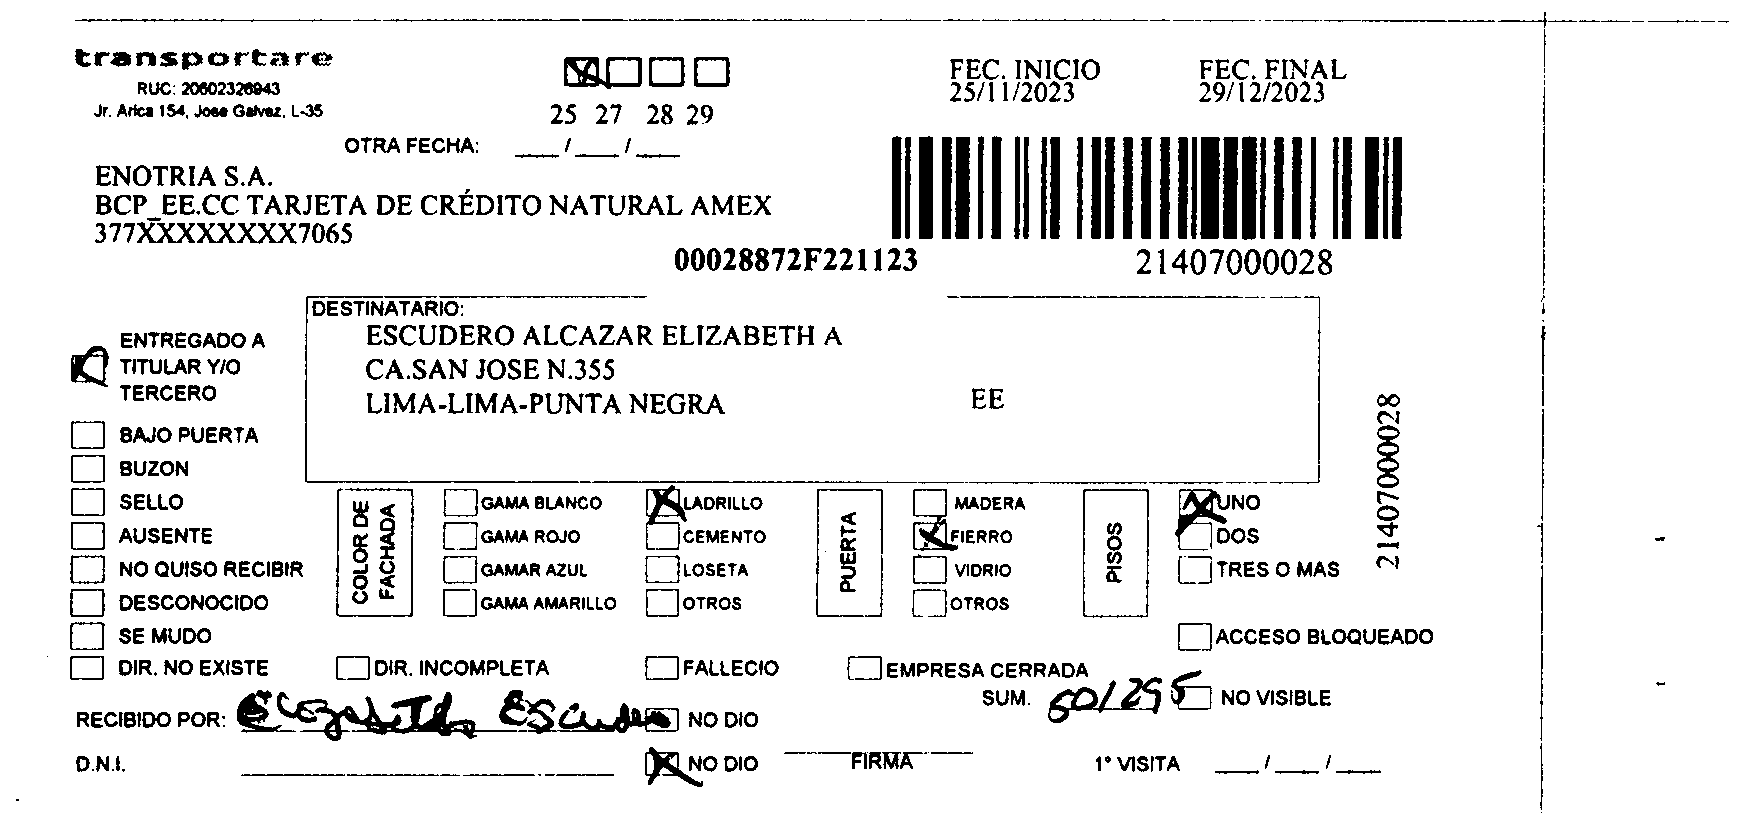 transportare
RUC: 20602326943
Jr. Arica 154, Jose Galvez, L-35
25 27 28 29
OTRA FECHA: ___/___/___
FEC. INICIO
25/11/2023
FEC. FINAL
29/12/2023
ENOTRIA S.A.
BCP_EE.CC TARJETA DE CRÉDITO NATURAL AMEX
377XXXXXXXX7065
00028872F221123
21407000028
DESTINATARIO:
ESCUDERO ALCAZAR ELIZABETH A
CA.SAN JOSE N.355
LIMA-LIMA-PUNTA NEGRA EE
21407000028
ENTREGADO A
TITULAR Y/O
TERCERO
BAJO PUERTA
BUZON
SELLO
AUSENTE
NO QUISO RECIBIR
DESCONOCIDO
SE MUDO
DIR. NO EXISTE
COLOR DE
FACHADA
GAMA BLANCO
GAMA ROJO
GAMAR AZUL
GAMA AMARILLO
LADRILLO
CEMENTO
LOSETA
OTROS
PUERTA
MADERA
FIERRO
VIDRIO
OTROS
PISOS
UNO
DOS
TRES O MAS
ACCESO BLOQUEADO
DIR. INCOMPLETA
FALLECIO
EMPRESA CERRADA
SUM. 601295
NO VISIBLE
RECIBIDO POR: Elizabeth Escudero
NO DIO
D.N.I.
NO DIO
FIRMA
1° VISITA ___/___/___